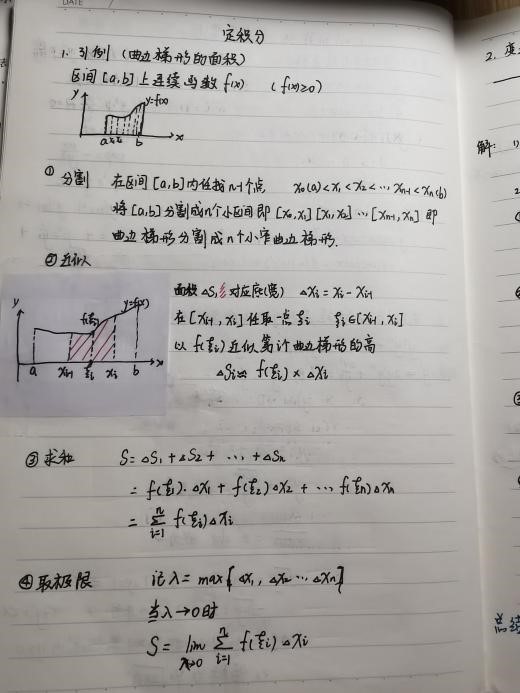 DATE
定积分
1. 引例 (曲边梯形的面积)
区间 [a,b] 上连续函数 f(x) (f(x)≥0)
y
y=f(x)
a x₁ x₂ b x
① 分割 在区间 [a,b] 内任找 n-1 个点, x₀(a)<x₁<x₂<…xₙ₋₁<xₙ(b)
将 [a,b] 分割成 n 个小区间即 [x₀,x₁] [x₁,x₂] … [xₙ₋₁,xₙ] 即
曲边梯形分割成 n 个小窄曲边梯形.
② 近似
y
f(ξᵢ)
y=f(x)
a xᵢ₋₁ ξᵢ xᵢ b x
面积 ΔSᵢ 对应底(宽) Δxᵢ = xᵢ - xᵢ₋₁
在 [xᵢ₋₁, xᵢ] 任取一点 ξᵢ ξᵢ∈[xᵢ₋₁, xᵢ]
以 f(ξᵢ) 近似第 i 个曲边梯形的高
ΔSᵢ ≈ f(ξᵢ) × Δxᵢ
③ 求和 S = ΔS₁ + ΔS₂ + … + ΔSₙ
= f(ξ₁)·Δx₁ + f(ξ₂)Δx₂ + … f(ξₙ)Δxₙ
= ∑ᵢ₌₁ⁿ f(ξᵢ)Δxᵢ
④ 取极限 记 λ = max{Δx₁, Δx₂ … Δxₙ}
当 λ→0 时
S = lim λ→0 ∑ᵢ₌₁ⁿ f(ξᵢ) Δxᵢ
2. 变
解: 1)
2
总结